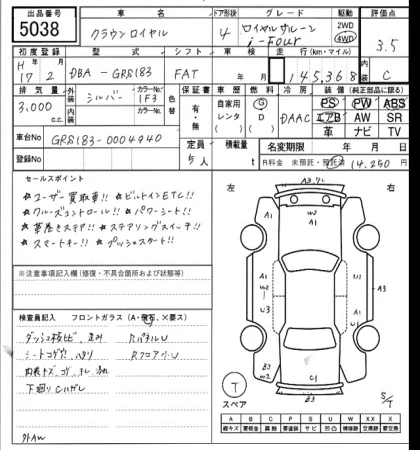 出品番号 車名 ドア形状 グレード 駆動 評価点
5038 クラウンロイヤル 4 ロイヤルサルーン i-Four 2WD 4WD 3.5
初度登録 型式 シフト 車検 走行(km・マイル) 内装
H 17 2 DBA-GRS183 FAT 年 月 145,368 C
排気量 外装色 カラーNo. 色替 カラーNo. 保証書 車歴 燃料 冷房 装備(純正部品に限る)
3,000 c.c. シルバー 1F3 有・無 自家用 レンタ G D AAC PS PW ABS
エアB AW SR
革 ナビ TV
車台No. GRS183-0004940 定員 5人 積載量 t 名変期限 年 月 日
R料金 未預託・預託済 14,250 円
セールスポイント
★ユーザー買取車!! ★ビルトインETC!!
★クルーズコントロール!! ★パワーシート!!
★革巻きステア!! ★ステアリングスイッチ!!
★スマートキー!! ★プッシュスタート!!
※注意事項記入欄(修復・不具合箇所および欠品等)
検査員記入 フロントガラス(A・飛石、×要ス)
ダッシュ
シートコゲ穴
内装キズ
下廻りCハガレ
RパネルU
RフロアU
外AW
左 右
W2
A1
A1
A1
A3
W2
U3
U1
A1
B3
W2
C1
B3
T
スペア
S/T
A B C P S U W X XX X
線キズ 要板金 腐蝕 要塗装 サビ 凹凸 補修跡 要交換 交換済 要交換